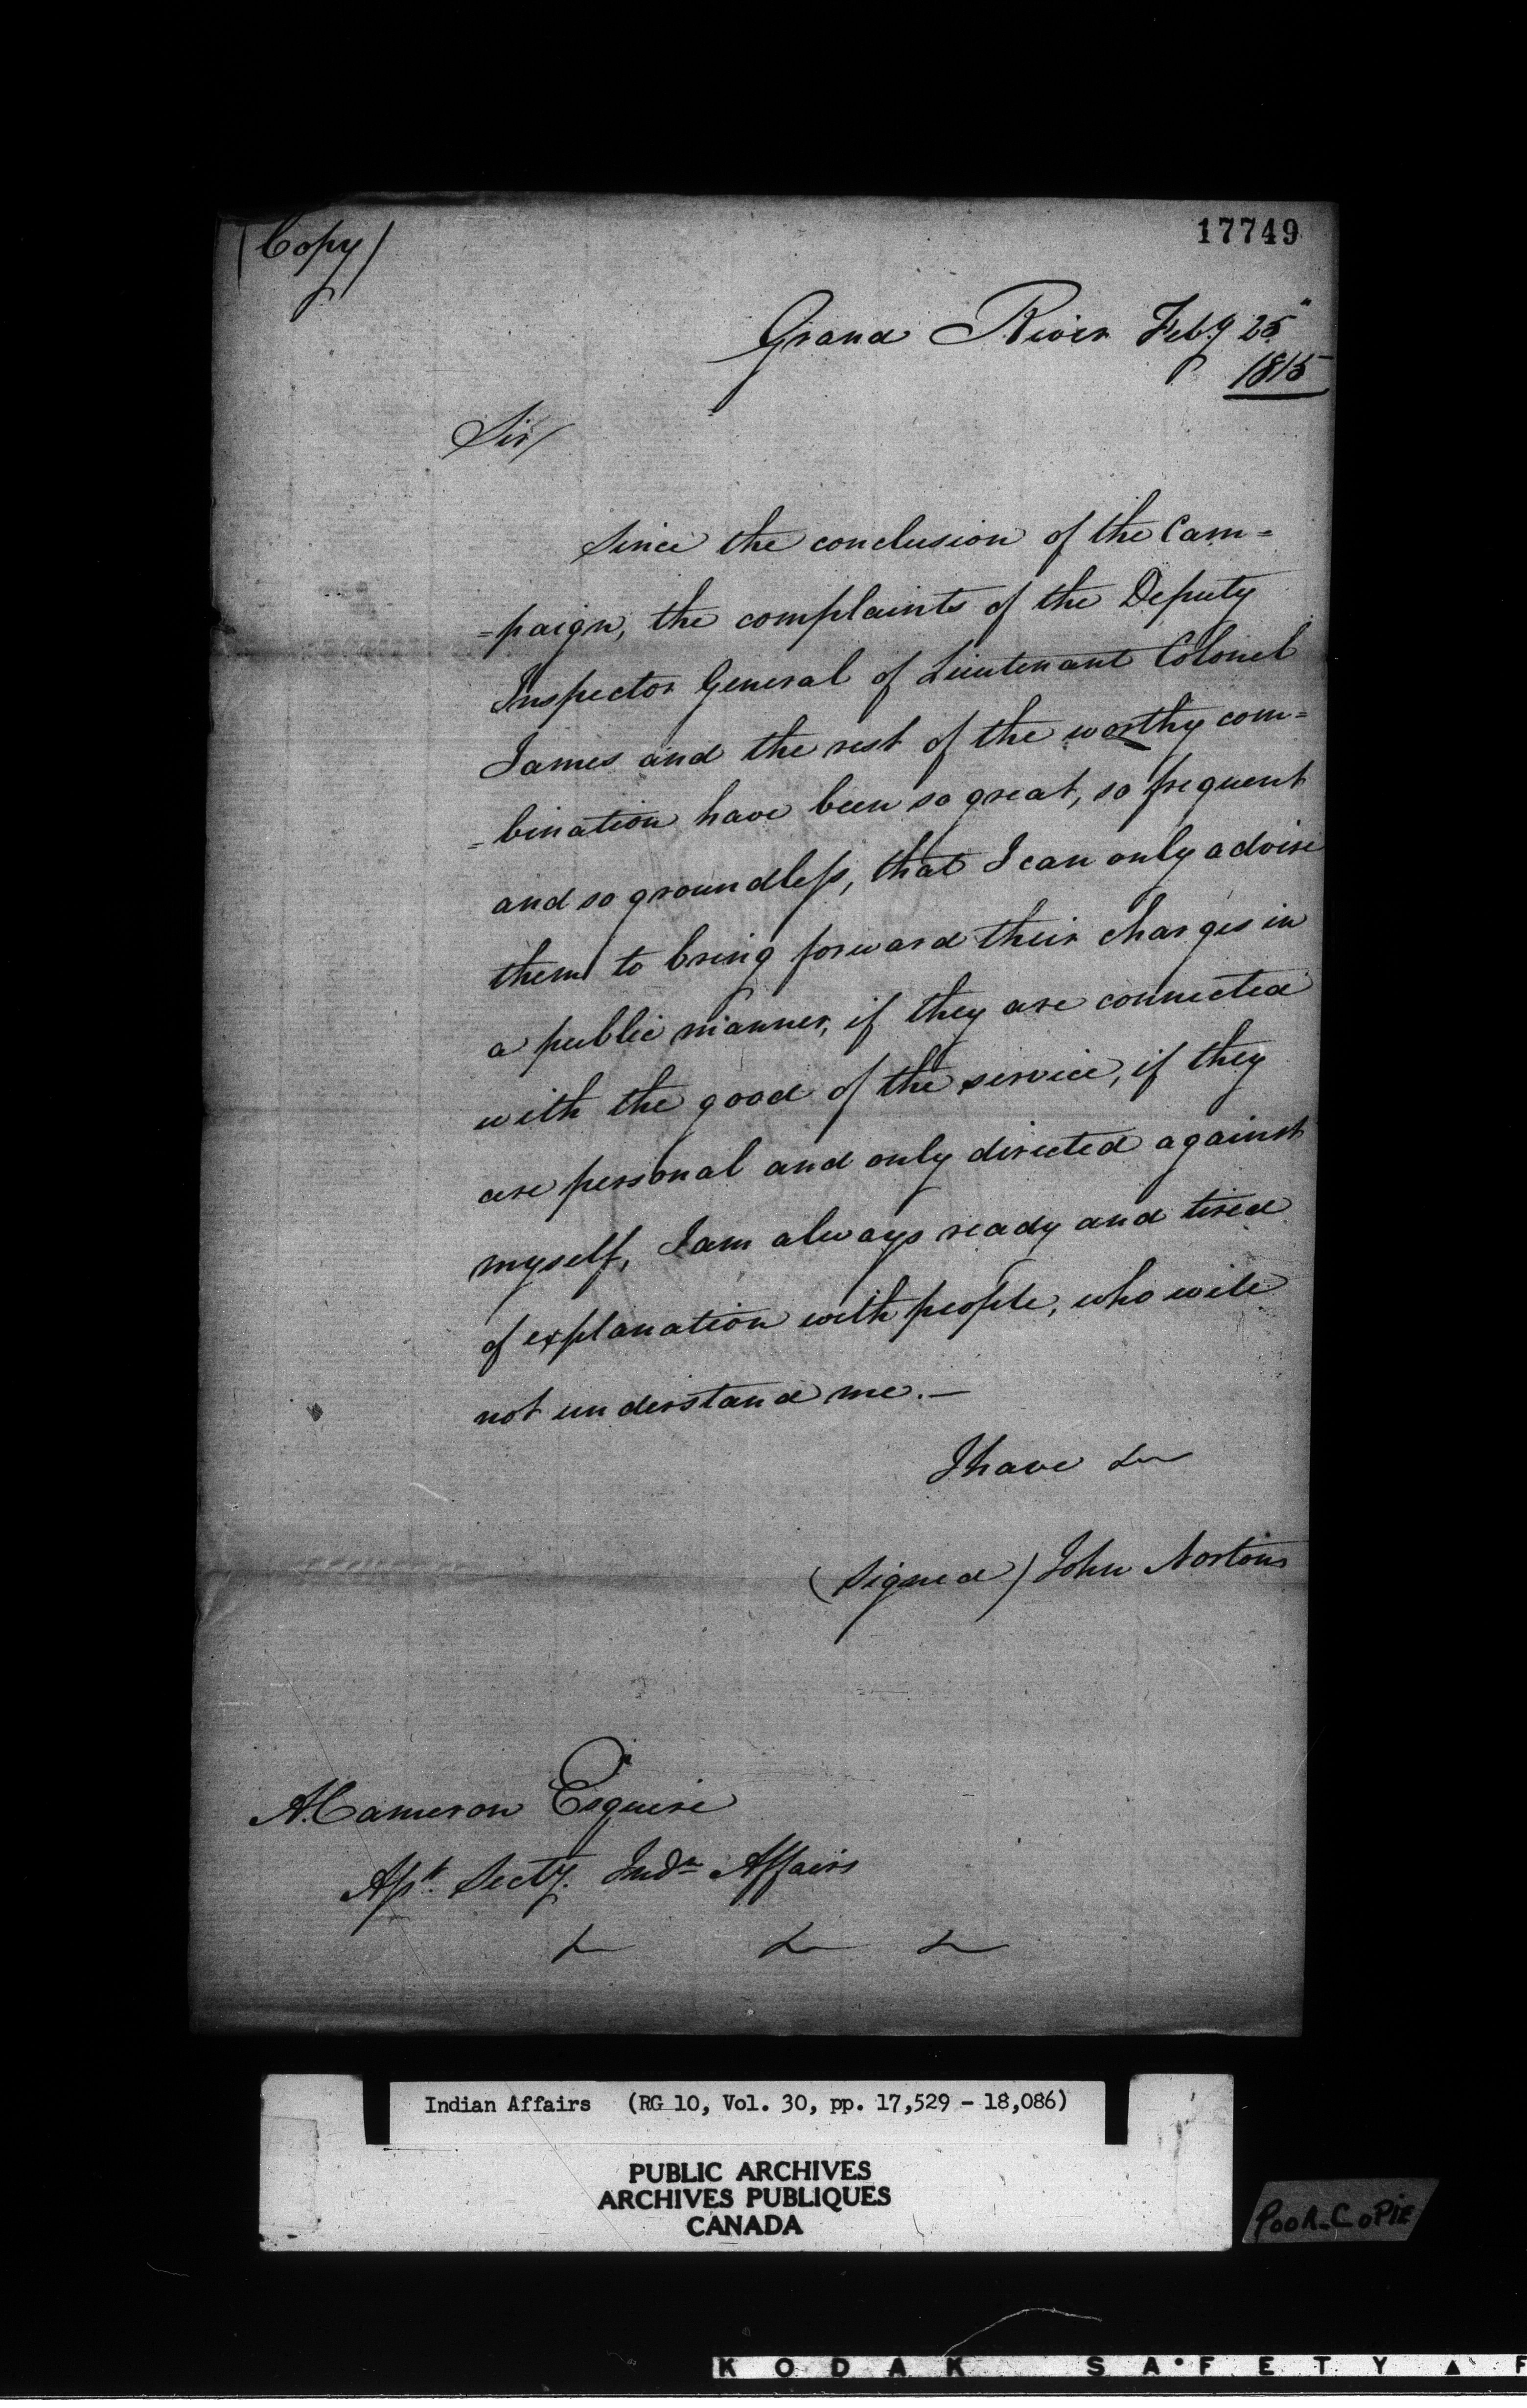 (Copy)
17749
Grand River Feby 25"
1815
Sir/
Since the conclusion of the Cam=
=paign, the complaints of the Deputy
Inspector General of Lieutenant Colonel
James and the rest of the worthy com=
=bination have been so great, so frequent
and so groundless, that I can only advise
them to bring forward their charges in
a public manner, if they are connected
with the good of the service, if they
are personal and only directed against
myself, I am always ready and tired
of explanation with people, who will
not understand me.—
I have &c
(Signed) John Norton
A. Cameron Esquire
Asst. Secty. Indn Affairs
&c &c &c
Indian Affairs (RG 10, Vol. 30, pp. 17,529 - 18,086)
PUBLIC ARCHIVES
ARCHIVES PUBLIQUES
CANADA
POOR COPIE
KODAK SAFETY F